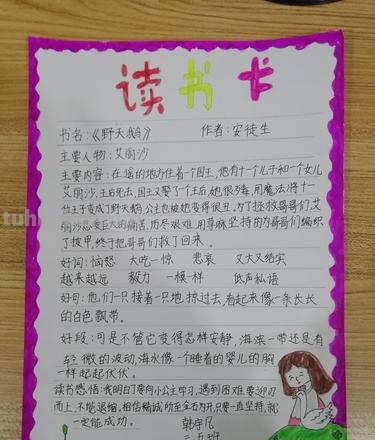 读书卡
书名:《野天鹅》 作者:安徒生
主要人物:艾丽沙
主要内容:在遥的地方住着一个国王,他有十一个儿子和一个女儿
艾丽沙,王后死去,国王又娶了个王后,她很歹毒,用魔法将十
一位王子变成了野天鹅,公主也被她变得很丑。为了拯救哥哥们,艾
丽沙忍受巨大的痛苦,历尽艰难,用荨麻坚持的为哥哥们编织
了披甲,终于把哥哥们救了回来。
好词:恼怒 大吃一惊 悲哀 又大又结实
越来越远 毅力 一模一样 低声私语
好句:他们一只接着一只地掠过去,看起来像一条长长
的白色飘带。
好段:可是不管它变得怎样安静,海滨一带还是有
轻微的波动,海水像一个睡着的婴儿的胸
一样起起伏伏。
读书感悟:我明白了要向小公主学习,遇到困难要迎刃
而上,不能退缩。相信精诚所至金石为开,只要一直坚持,就
一定能成功。 韩
二五班